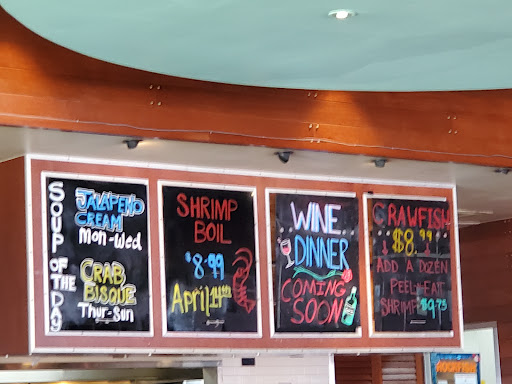 SOUP OF THE DAY
JALAPENO
CREAM
Mon-Wed
CRAB
BISQUE
Thur-Sun
SHRIMP
BOIL
$8.99
April 14th
WINE
DINNER
COMING
SOON
CRAWFISH
$8.99
ADD A DOZEN
PEEL & EAT
SHRIMP $9.75